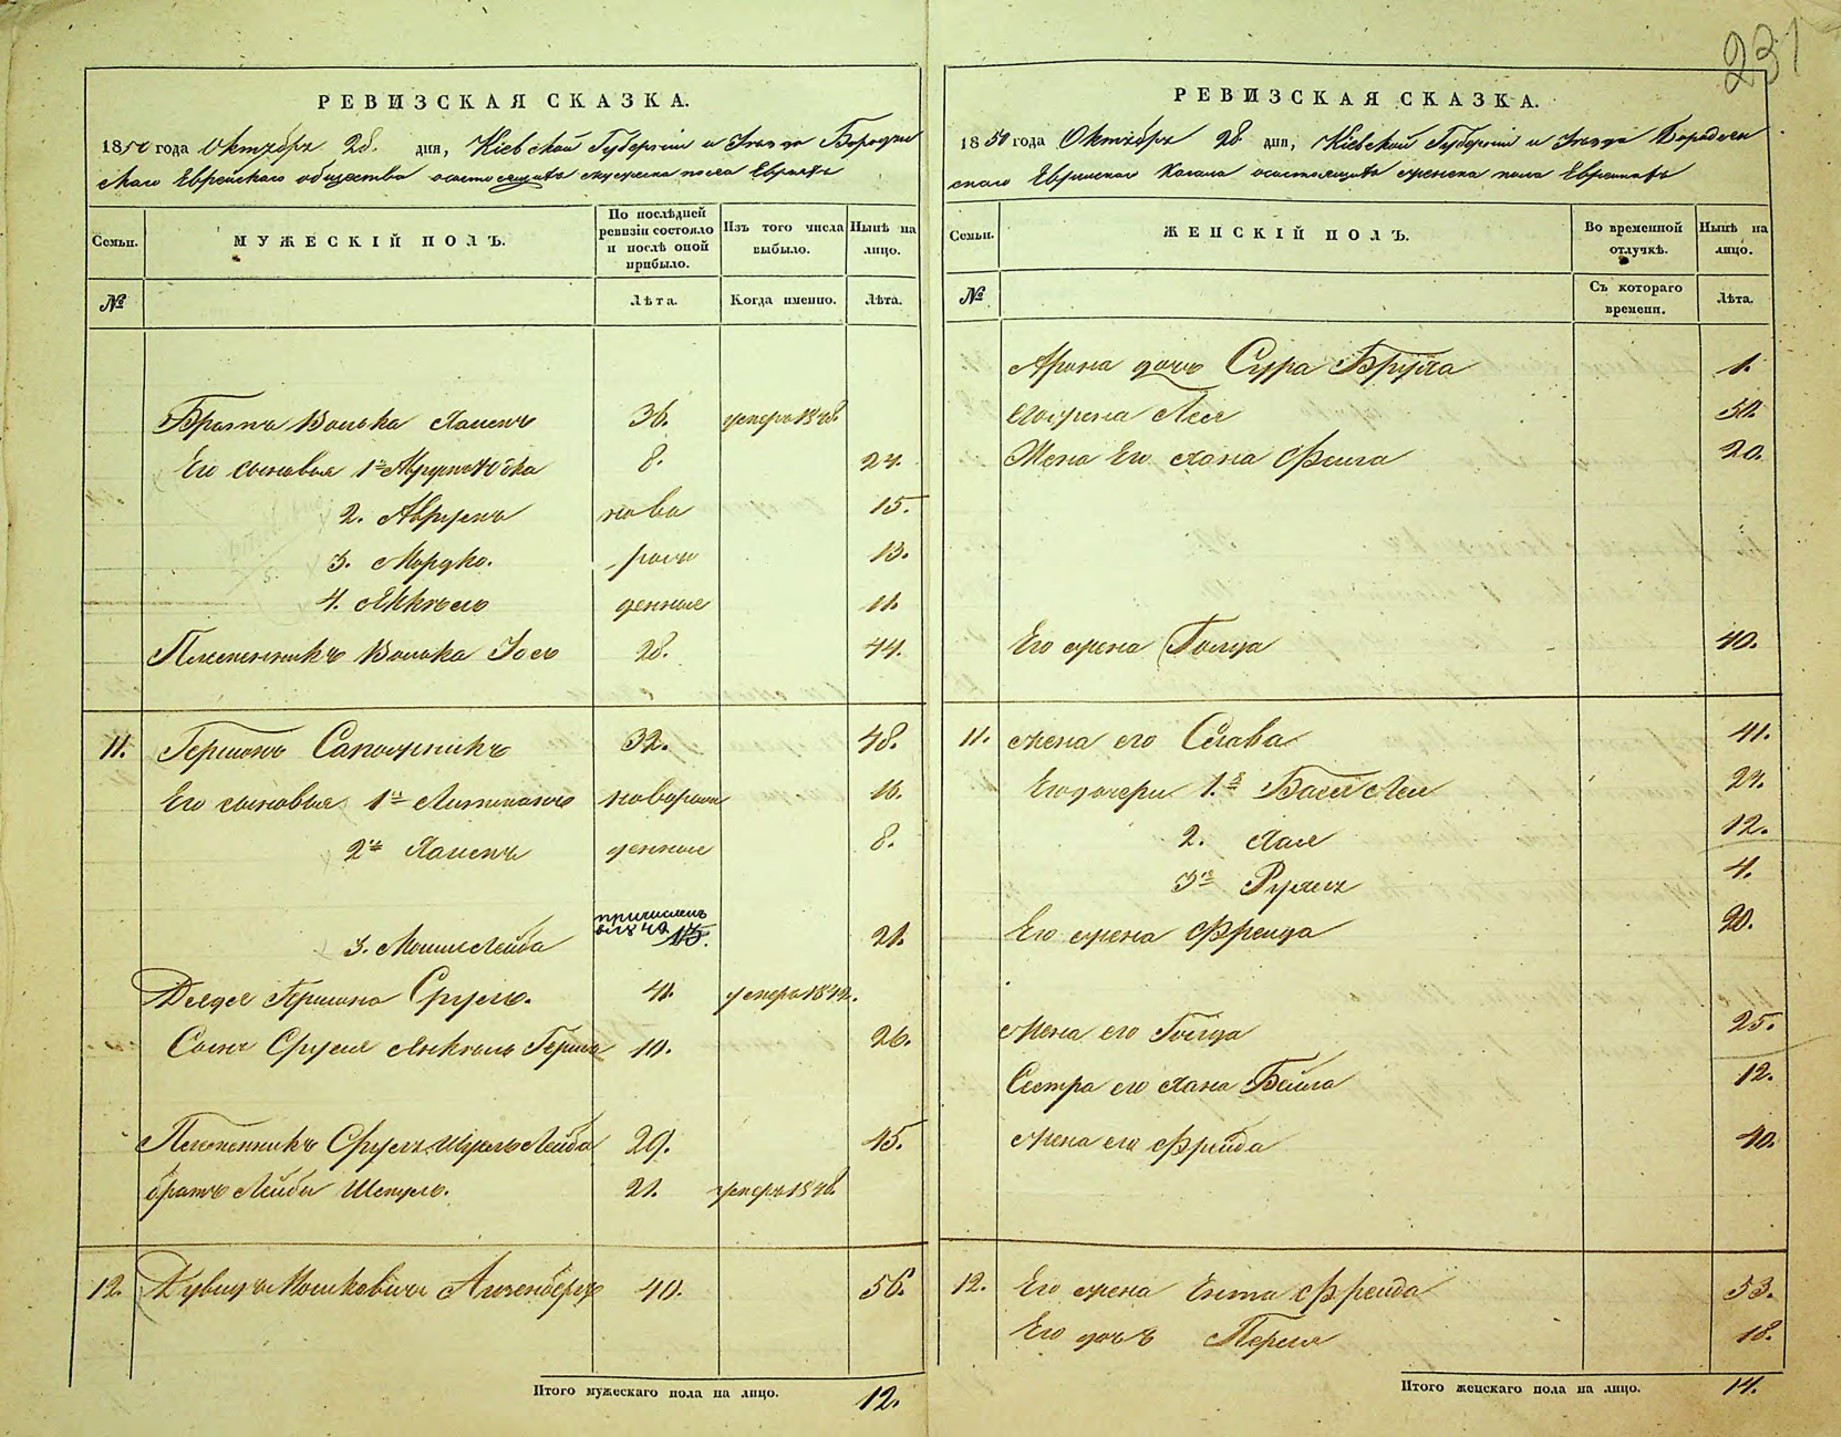 231
РЕВИЗСКАЯ СКАЗКА.
1850 года Октября 28. дня, Кіевской Губерніи и Уезда Бородян
скаго Еврейскаго общества о состоящихъ мужеска пола Евреяхъ
Семьи.
МУЖЕСКІЙ ПОЛЪ.
По послѣдней ревизіи состояло и послѣ оной прибыло.
Изъ того числа выбыло.
Нынѣ на лицо.
№
Лѣта.
Когда именно.
Лѣта.
Братъ Волька Хаимъ 36. умеръ 1848.
Его сыновья 1й 8. 24.
2. Аврумъ ново 15.
3. Мордко. рож 13.
4. Янкель денные 11.
Племянникъ Волька Іось 28. 44.
11. Гершонъ Сапожникъ 32. 48.
Его сыновья 1й новорож 16.
2й Хаимъ денные 8.
3. Мошко Лейба причисленъ 15. 21.
Дядя Гершона Сруль. 41. умеръ 1844.
Сынъ Сруля Янкель Герш 10. 26.
Племянникъ Сруля Лейба 29. 45.
братъ Лейбы 21. умеръ 1848.
12. Дувидъ Мошковичъ 40. 56.
Итого мужескаго пола на лицо. 12.
РЕВИЗСКАЯ СКАЗКА.
1850 года Октября 28. дня, Кіевской Губерніи и Уезда Бородян
скаго Еврейскаго Кагала о состоящихъ женска пола Евреянахъ
Семьи.
ЖЕНСКІЙ ПОЛЪ.
Во временной отлучкѣ.
Нынѣ на лицо.
№
Съ котораго времени.
Лѣта.
Арона дочь Сура Брука 1.
Лея 50.
Жена Его Хана Фейга 20.
Его жена Голда 40.
11. жена его Слава 41.
Его дочери 1я Бася Лея 24.
2. Хая 12.
3я Рухля 4.
Его жена Фрейда 20.
жена его Голда 25.
Сестра его Хана Бейла 12.
жена его Фрейда 40.
12. Его жена Ента Фрейда 53.
Его дочь Перля 18.
Итого женскаго пола на лицо. 14.